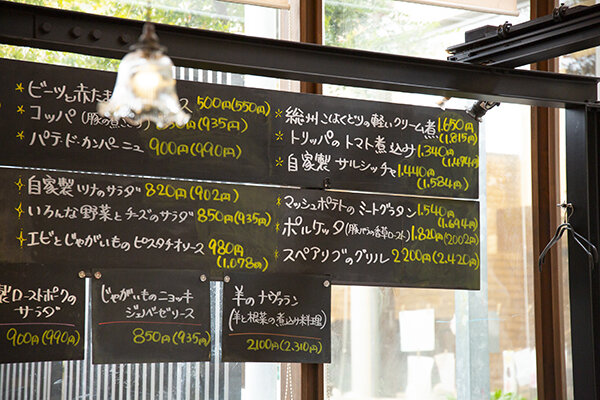 ビーツと赤たま ス 500円(550円)
コッパ(豚の煮こごり) 850円(935円)
パテ・ド・カンパーニュ 900円(990円)
自家製ツナのサラダ 820円(902円)
いろんな野菜とチーズのサラダ 850円(935円)
エビとじゃがいもの ピスタチオソース 980円
(1,078円)
総州こはくどりの軽いクリーム煮 1,650円
(1,815円)
トリッパの トマト煮込み 1,340円
(1,474円)
自家製 サルシッチャ 1,440円
(1,584円)
マッシュポテトの ミートグラタン 1,540円
(1,694円)
ポルケッタ(豚バラの香草ロースト) 1,820円(2002円)
スペアリブのグリル 2200円(2,420円)
製ローストポークの
サラダ
900円(990円)
じゃがいものニョッキ
ジェノベーゼソース
850円(935円)
羊の ナヴァラン
(羊と根菜の煮込み料理)
2100円(2,310円)